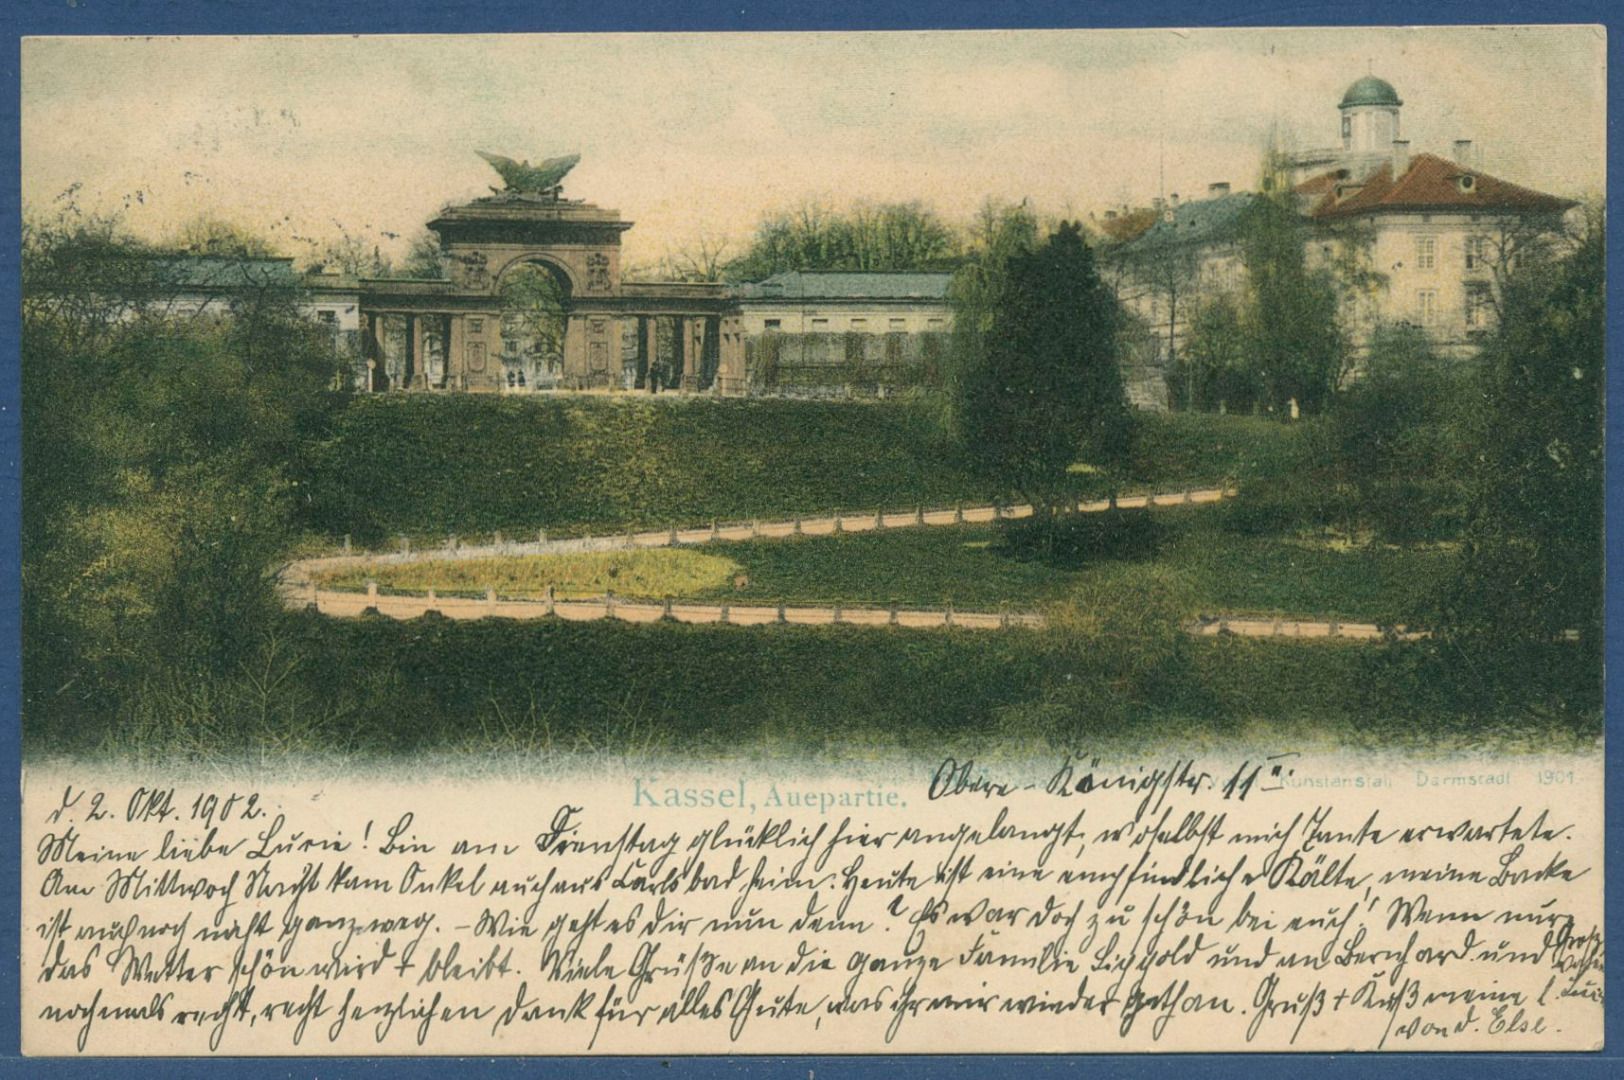 Kassel, Auepartie.
Kunstanstalt Darmstadt 1901.
Obere-Königstr. 11 II.
d. 2. Okt. 1902.
Meine liebe Lucie! Bin am Dienstag glücklich hier angelangt, woselbst mich Tante erwartete.
Am Mittwoch Nacht kam Onkel auch aus Carlsbad heim. Heute ist eine empfindliche Kälte, meine Backe
ist auch noch nicht ganz weg. - Wie geht es dir nun denn? Es war doch zu schön bei euch! Wenn nur
das Wetter schön wird + bleibt. Viele Grüße an die ganze Familie und an Bernhard und
nochmals recht, recht herzlichen Dank für alles Gute, was ihr mir wieder gethan. Gruß + Kuß meine l.
von d. Else.